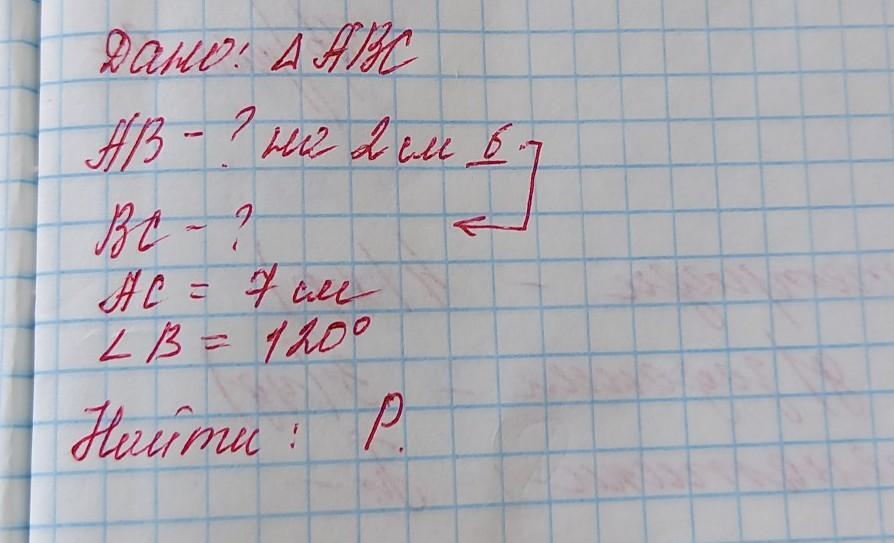 Дано: △ ABC
AB - ? на 2 см б.
BC - ?
AC = 7 см
∠ B = 120°
Найти: P.